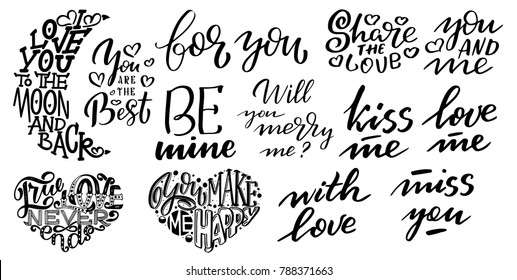 I
LOVE
YOU
TO THE
MOON
AND
BACK
You
ARE THE
Best
for you
Share
THE
LOVE
you
AND
me
BE
mine
Will
you
merry
me?
kiss
me
love
me
True LOVE
NEVER
ends
You MAKE
ME
HAPPY
with
love
miss
you
shutterstock.com · 788371663